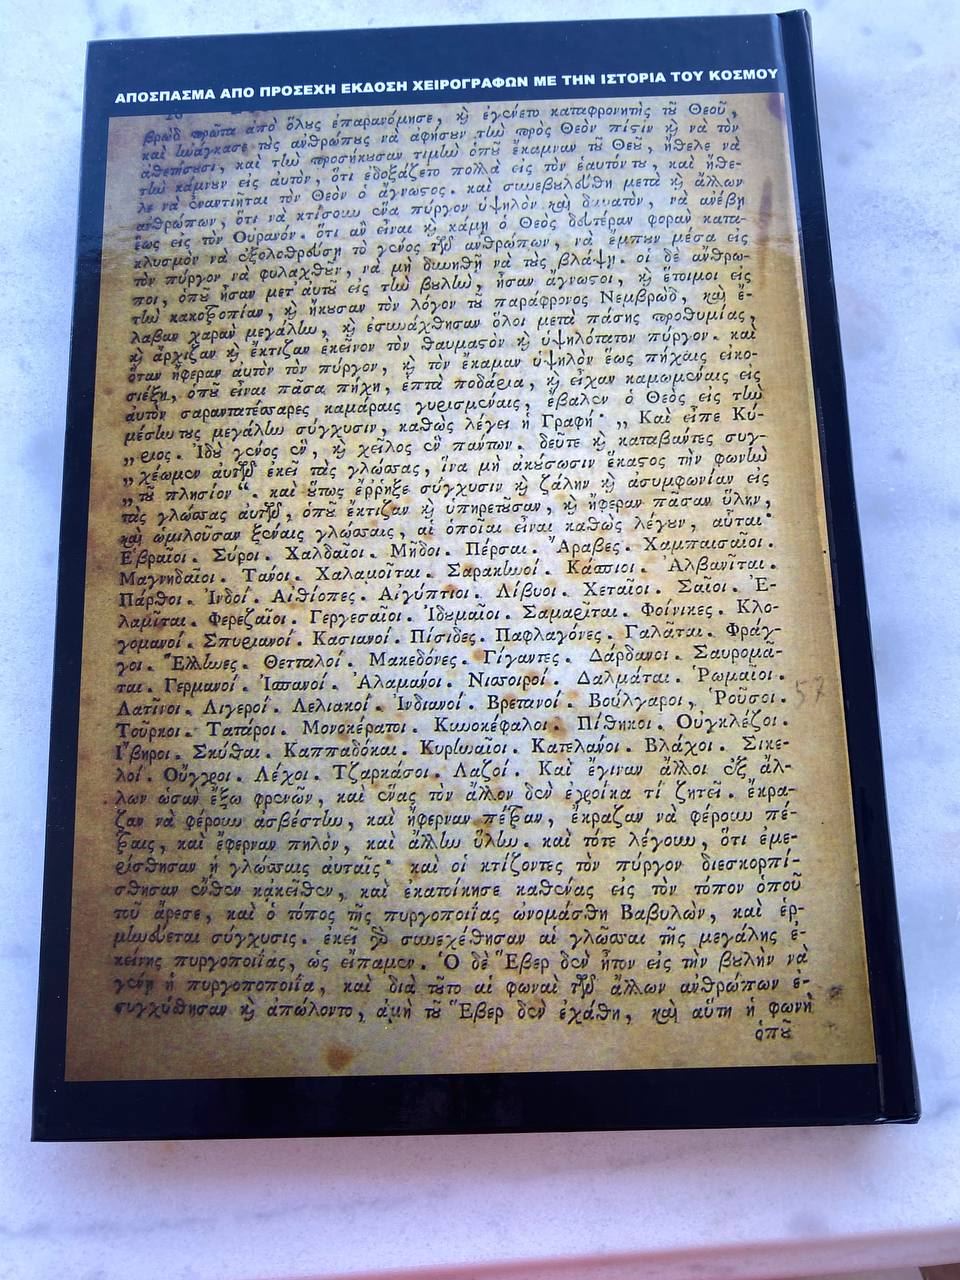 ΑΠΟΣΠΑΣΜΑ ΑΠΟ ΠΡΟΣΕΧΗ ΕΚΔΟΣΗ ΧΕΙΡΟΓΡΑΦΩΝ ΜΕ ΤΗΝ ΙΣΤΟΡΙΑ ΤΟΥ ΚΟΣΜΟΥ
βρὼδ πρῶτα ἀπὸ ὅλους ἐπαρανόμησε, καὶ ἐγένετο καταφρονητὴς τοῦ Θεοῦ,
καὶ ἠνάγκασε τοὺς ἀνθρώπους νὰ ἀφήσουν τὴν πρὸς Θεὸν πίστιν καὶ νὰ τὸν
ἀθετήσουσι, καὶ τὴν προσήκουσαν τιμὴν ὁποῦ ἔκαμναν τοῦ Θεοῦ, ἤθελε νὰ
τὴν κάμνουν εἰς αὐτὸν, ὅτι ἐδοξάζετο πολλὰ εἰς τὸν ἑαυτόν του, καὶ ἤθε-
λε νὰ ἐναντιῆται τὸν Θεὸν ὁ ἄγνωστος. καὶ συνεβουλεύθη μετὰ καὶ ἄλλων
ἀνθρώπων, ὅτι νὰ κτίσουν ἕνα πύργον ὑψηλὸν καὶ δυνατὸν, νὰ ἀνέβη
ἕως εἰς τὸν Οὐρανόν. ὅτι ἂν εἶναι καὶ κάμη ὁ Θεὸς δευτέραν φορὰν κατα-
κλυσμὸν νὰ ἐξολοθρεύση τὸ γένος τῶν ἀνθρώπων, νὰ ἔμπουν μέσα εἰς
τὸν πύργον νὰ φυλαχθοῦν, νὰ μὴ δυνηθῆ νὰ τοὺς βλάψη. οἱ δὲ ἄνθρω-
ποι, ὁποῦ ἦσαν μετ' αὐτοῦ εἰς τὴν βουλὴν, ἦσαν ἄγνωστοι, καὶ ἕτοιμοι εἰς
τὴν κακοδοξίαν, καὶ ἤκουσαν τὸν λόγον τοῦ παράφρονος Νεμβρὼδ, καὶ ἔ-
λαβαν χαρὰν μεγάλην, καὶ ἐσυνάχθησαν ὅλοι μετὰ πάσης προθυμίας,
καὶ ἄρχιζαν καὶ ἔκτιζαν ἐκεῖνον τὸν θαυμαστὸν καὶ ὑψηλότατον πύργον. καὶ
ὅταν ἤφεραν αὐτὸν τὸν πύργον, καὶ τὸν ἔκαμαν ὑψηλὸν ἕως πήχαις εἰκο-
σιέξη, ὁποῦ εἶναι πᾶσα πήχη, ἑπτὰ ποδάρια, καὶ εἶχαν καμωμέναις εἰς
αὐτὸν σαραντατέσσαρες καμάραις γυρισμέναις, ἔβαλεν ὁ Θεὸς εἰς τὴν
μέσην τους μεγάλην σύγχυσιν, καθὼς λέγει ἡ Γραφή· „ Καὶ εἶπε Κύ-
„ ριος. Ἰδοὺ γένος ἓν, καὶ χεῖλος ἓν πάντων. δεῦτε καὶ καταβάντες συγ-
„ χέωμεν αὐτῶν ἐκεῖ τὰς γλώσσας, ἵνα μὴ ἀκούσωσιν ἕκαστος τὴν φωνὴν
„ τοῦ πλησίον“. καὶ οὕτως ἔρρηξε σύγχυσιν καὶ ζάλην καὶ ἀσυμφωνίαν εἰς
τὰς γλώσσας αὐτῶν, ὁποῦ ἔκτιζαν καὶ ὑπηρετοῦσαν, καὶ ἤφεραν πᾶσαν ὕλην,
καὶ ὡμιλοῦσαν ξέναις γλώσσαις, αἱ ὁποῖαι εἶναι καθὼς λέγουν, αὗται·
Ἑβραῖοι. Σύροι. Χαλδαῖοι. Μῆδοι. Πέρσαι. Ἄραβες. Χαμπαισαῖοι.
Μαγνηδαῖοι. Τανοί. Χαλαμοῖται. Σαρακηνοί. Κάσσιοι. Ἀλβανῖται.
Πάρθοι. Ἰνδοί. Αἰθίοπες. Αἰγύπτιοι. Λίβυοι. Χεταῖοι. Σαῖοι. Ἐ-
λαμῖται. Φερεζαῖοι. Γεργεσαῖοι. Ἰδουμαῖοι. Σαμαρῖται. Φοίνικες. Κλο-
γομανοί. Σπυριανοί. Κασιανοί. Πίσιδες. Παφλαγόνες. Γαλᾶται. Φράγ-
γοι. Ἕλληνες. Θετταλοί. Μακεδόνες. Γίγαντες. Δάρδανοι. Σαυρομᾶ-
ται. Γερμανοί. Ἱσπανοί. Ἀλαμανοι. Νισσοιροί. Δαλμάται. Ῥωμαῖοι.
Λατῖνοι. Λιγεροί. Λελιακοί. Ἰνδιανοί. Βρετανοί. Βούλγαροι, Ῥοῦσοι.
Τοῦρκοι. Τατάροι. Μονοκέρατοι. Κυνοκέφαλοι. Πίθηκοι. Οὐγκλέζοι.
Ἴβηροι. Σκύθαι. Καππαδόκαι. Κυρηναῖοι. Κατελάνοι. Βλάχοι. Σικε-
λοί. Οὔγγροι. Λέχοι. Τζαρκάσοι. Λαζοί. Καὶ ἔγιναν ἄλλοι ἐξ ἄλ-
λων ὡσὰν ἔξω φρενῶν, καὶ ἕνας τὸν ἄλλον δὲν ἐγροίκα τί ζητεῖ. ἔκρα-
ζαν νὰ φέρουν ἀσβέστην, καὶ ἤφερναν πέτραν, ἔκραζαν νὰ φέρουν πέ-
τραις, καὶ ἔφερναν πηλὸν, καὶ ἄλλην ὕλην. καὶ τότε λέγουν, ὅτι ἐμε-
ρίσθησαν ἡ γλώσσαις αὐταῖς· καὶ οἱ κτίζοντες τὸν πύργον διεσκορπί-
σθησαν ἔνθεν κἀκεῖθεν, καὶ ἐκατοίκησε καθένας εἰς τὸν τόπον ὁποῦ
τοῦ ἄρεσε, καὶ ὁ τόπος τῆς πυργοποιΐας ὠνομάσθη Βαβυλὼν, καὶ ἑρ-
μηνεύεται σύγχυσις. ἐκεῖ γὰρ συνεχέθησαν αἱ γλῶσσαι τῆς μεγάλης ἐ-
κείνης πυργοποιΐας, ὡς εἴπαμεν. Ὁ δὲ Ἕβερ δὲν ἦτον εἰς τὴν βουλὴν νὰ
γένη ἡ πυργοποποιΐα, καὶ διὰ τοῦτο αἱ φωναὶ τῶν ἄλλων ἀνθρώπων ἐ-
συγχύθησαν καὶ ἀπώλοντο, ἀμὴ τοῦ Ἕβερ δὲν ἐχάθη, καὶ αὕτη ἡ φωνὴ
ὁποῦ
57